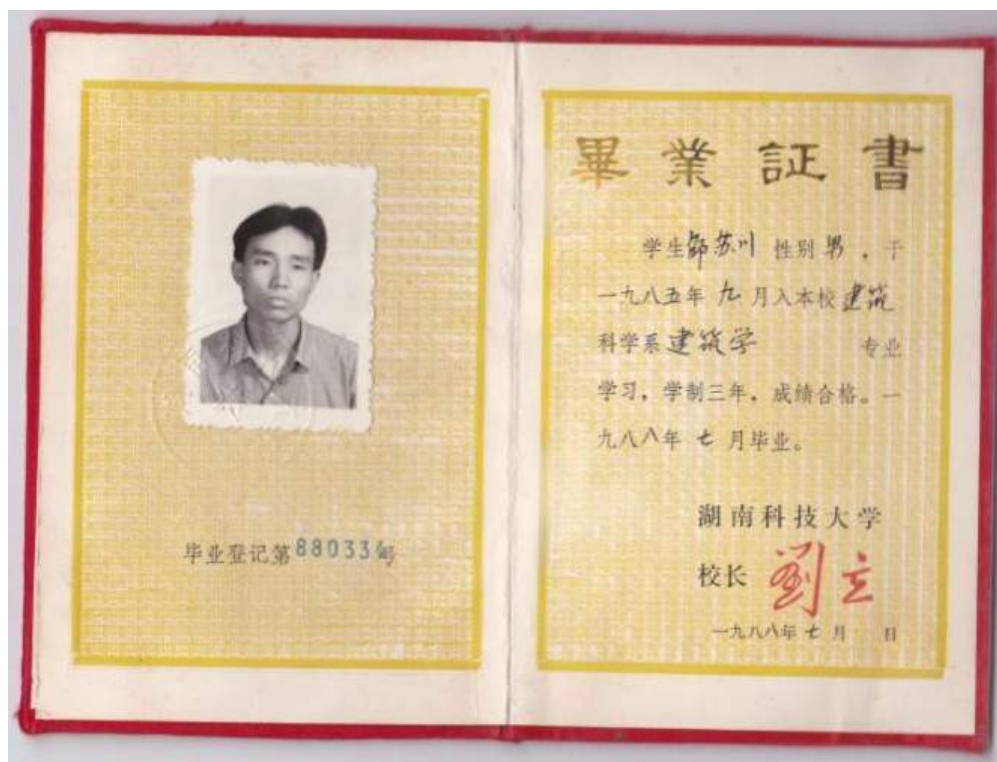 毕业登记第88033号
畢業証書
学生邹苏川 性别男，于
一九八五年 九 月入本校建筑
科学系建筑学 专业
学习，学制三年，成绩合格。一
九八八年 七 月毕业。
湖南科技大学
校长 劉立
一九八八年 七 月 日